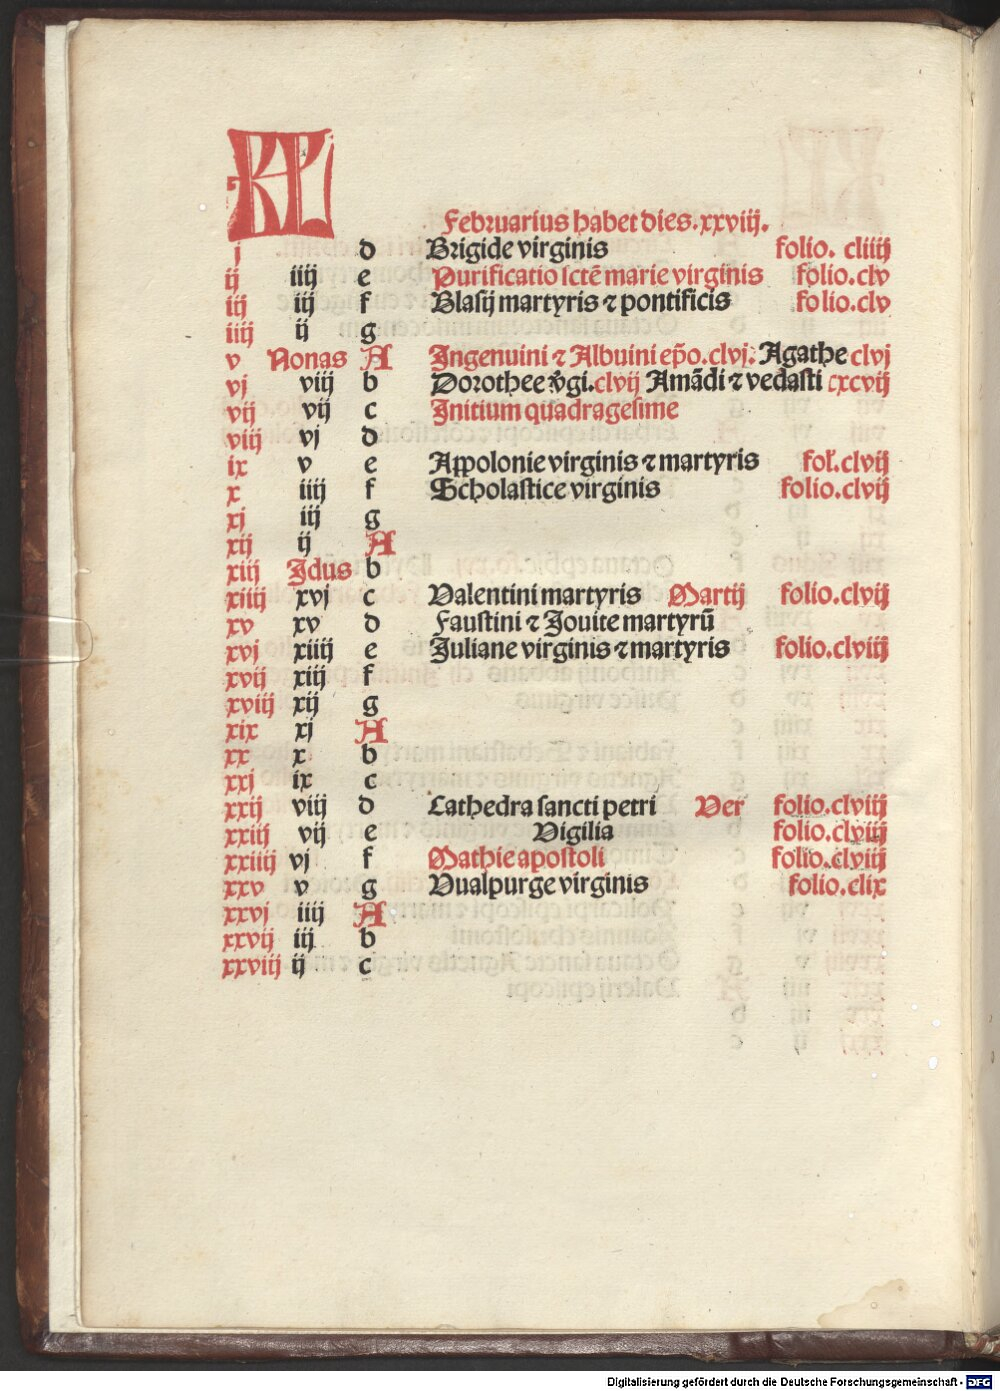 KL
Februarius habet dies. xxviij.
j d Brigide virginis folio. cliiij
ij iiij e Purificatio sctē marie virginis folio.clv
iij iij f Blasij martyris ⁊ pontificis folio.clv
iiij ij g
v Nonas A Ingenuini ⁊ Albuini ep̄o. clvj. Agathe clvj
vj viij b Dorothee v̄gi. clvij Amādi ⁊ vedasti cxcvij
vij vij c Initium quadragesime
viij vj d
ix v e Appolonie virginis ⁊ martyris fol.clvij
x iiij f Scholastice virginis folio.clvij
xj iij g
xij ij A
xiij Idus b
xiiij xvj c Valentini martyris Martij folio.clvij
xv xv d Faustini ⁊ Jouite martyrū
xvj xiiij e Juliane virginis ⁊ martyris folio.clviij
xvij xiij f
xviij xij g
xix xj A
xx x b
xxj ix c
xxij viij d Cathedra sancti petri Ver folio.clviij
xxiij vij e Vigilia folio.clviij
xxiiij vj f Mathie apostoli folio.clviij
xxv v g Vualpurge virginis folio.clix
xxvj iiij A
xxvij iij b
xxviij ij c
Digitalisierung gefördert durch die Deutsche Forschungsgemeinschaft - DFG